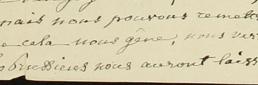 mais nous pouvons remett
cela nous gêne, nous ver
nous auront laiss